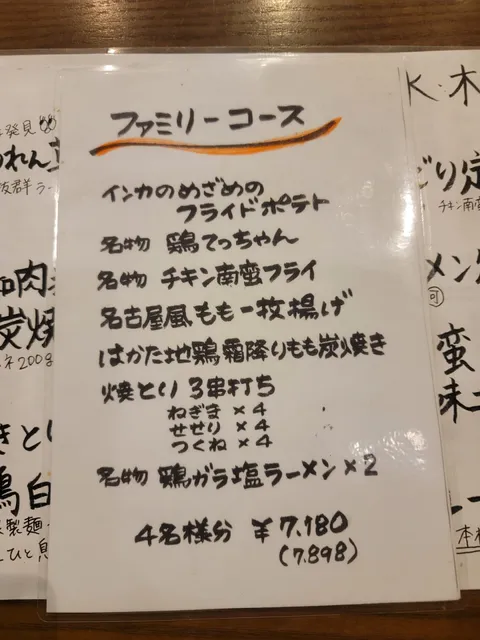 ファミリーコース
インカのめざめの
フライドポテト
名物 鶏てっちゃん
名物 チキン南蛮フライ
名古屋風もも一枚揚げ
はかた地鶏霜降りもも炭焼き
焼とり 3串打ち
ねぎま×4
せせり×4
つくね×4
名物 鶏ガラ塩ラーメン×2
4名様分 ¥7,180
(7,898)
発見
れん
抜群ラー
肉
炭焼
ネ200g
きとり
鶏白
製麺
ひと息
K・木
どり定
チキン南蛮
メン
可
蛮
味
本格